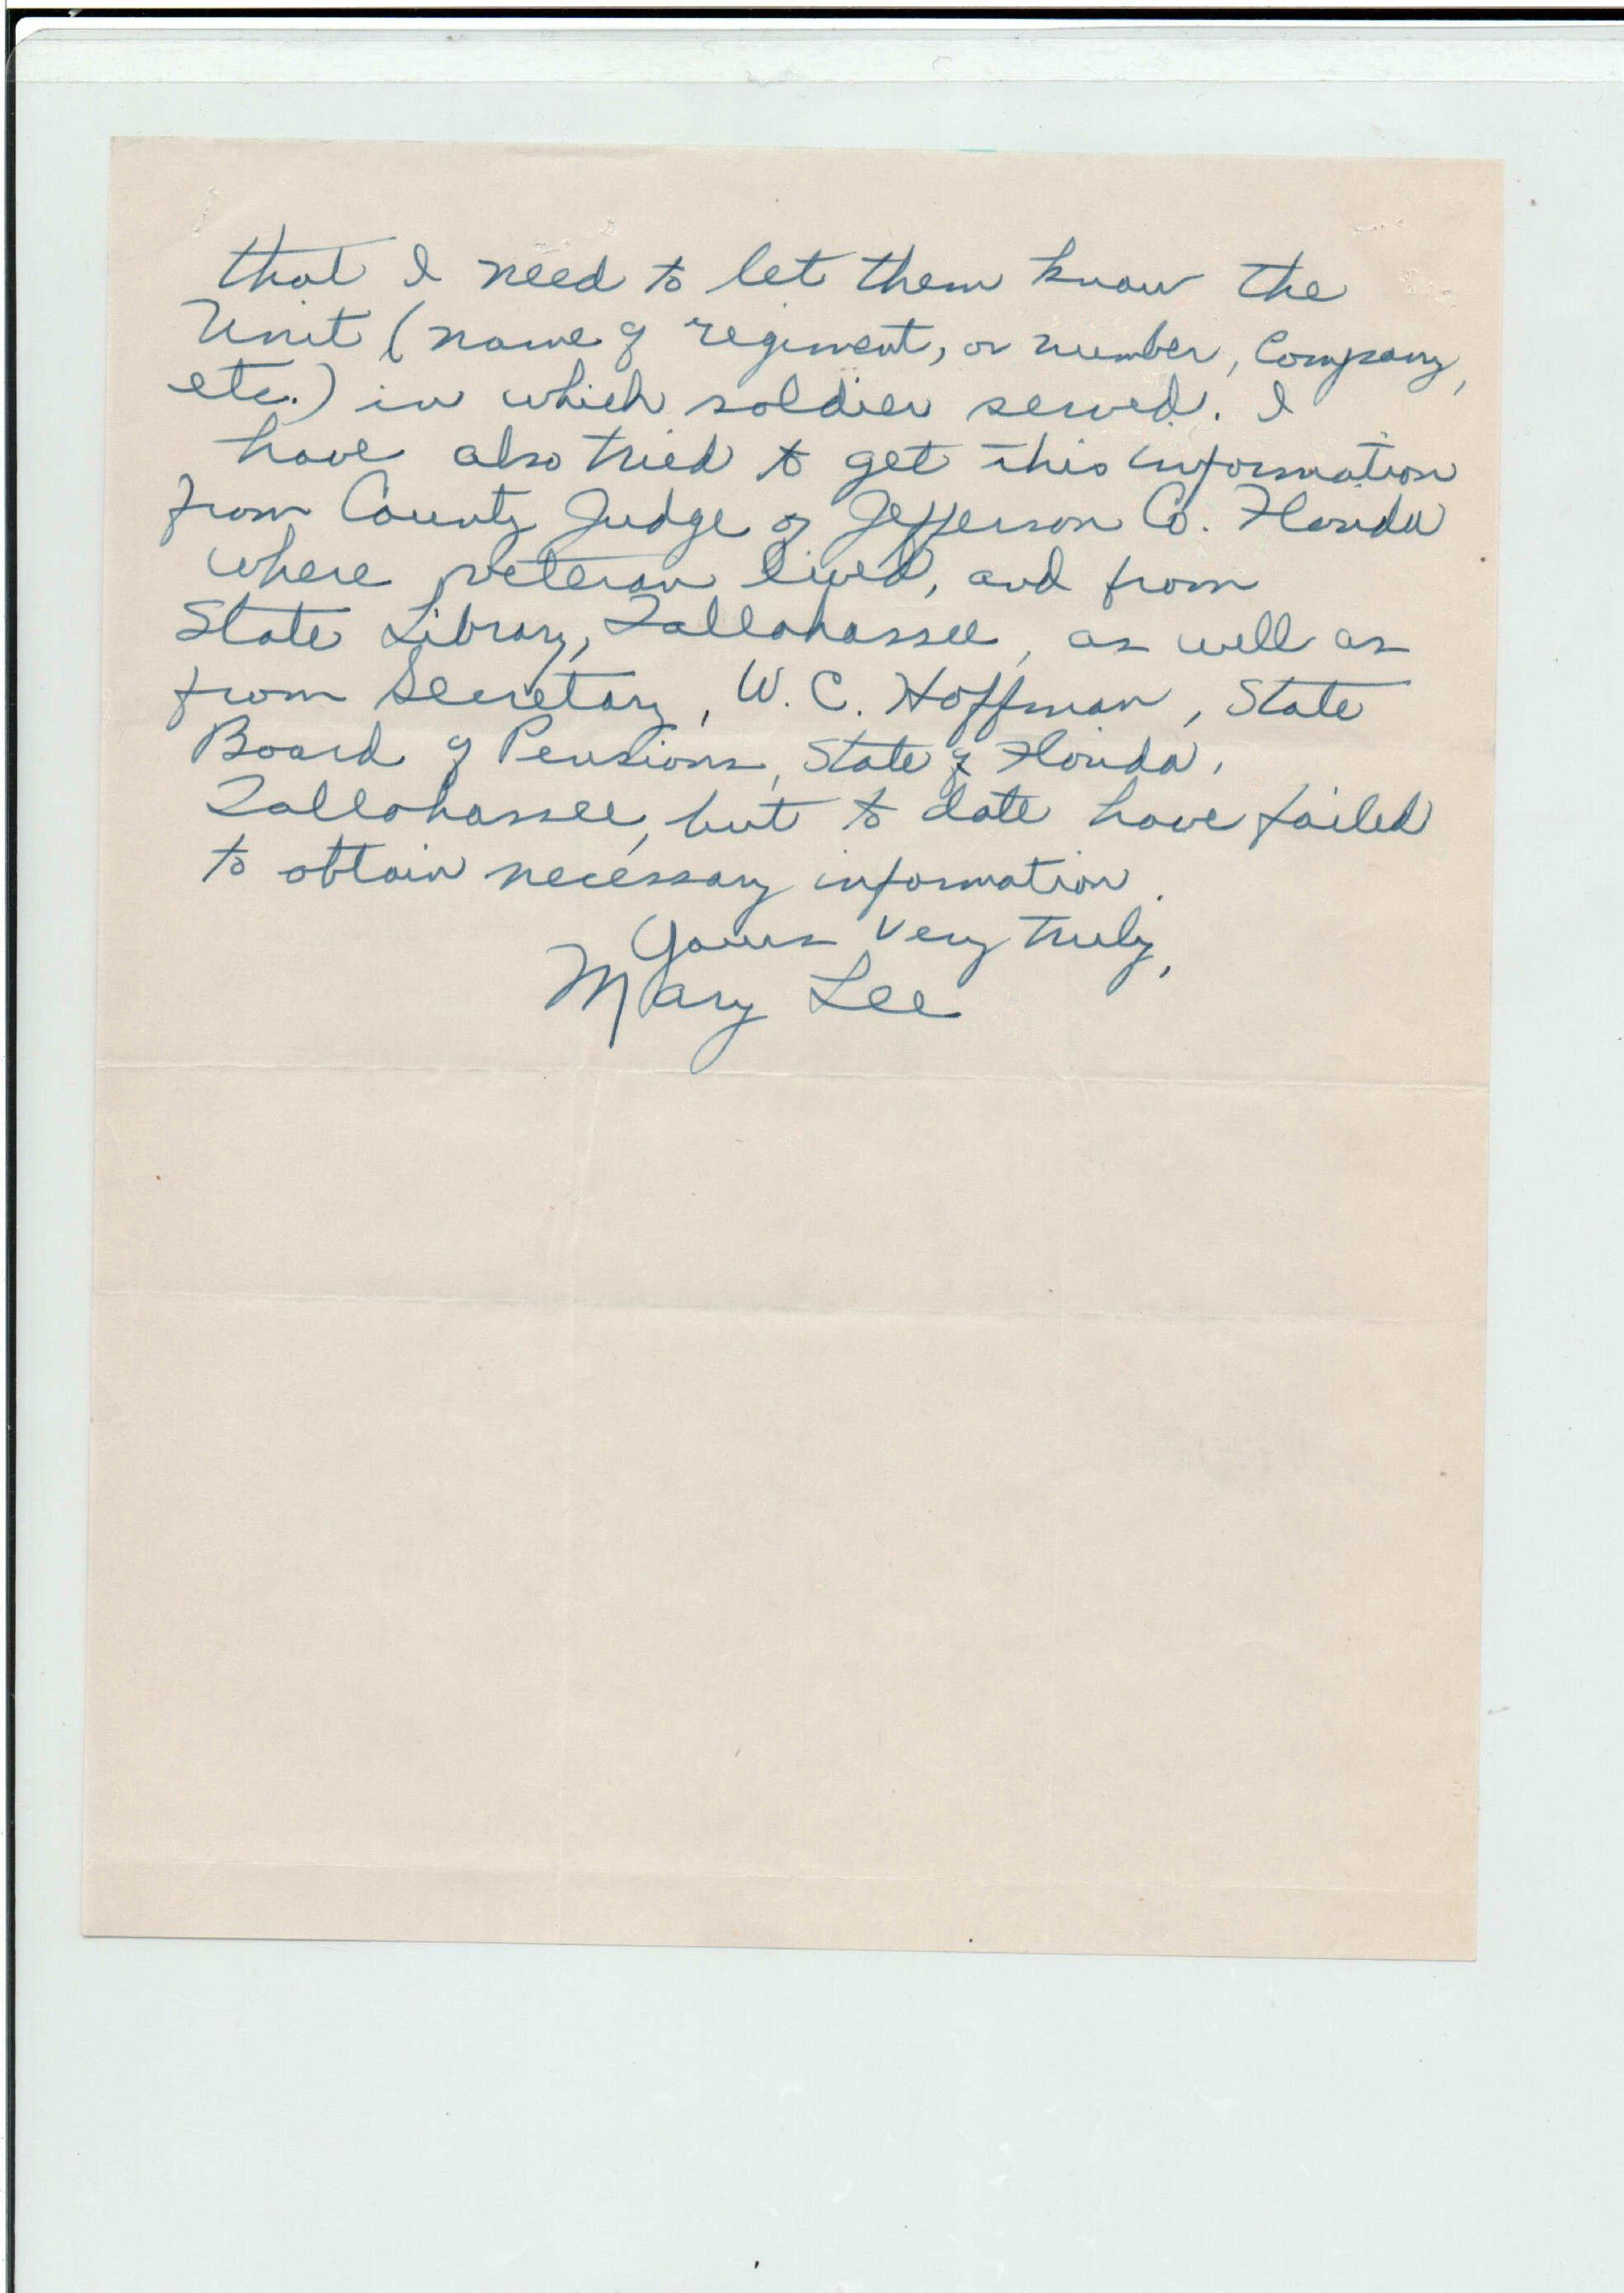 that I need to let them know the
Unit (name of regiment, or number, Company,
etc.) in which soldier served. I
have also tried to get this information
from County Judge of Jefferson Co. Florida
where veteran lived, and from
State Library, Tallahassee, as well as
from Secretary, W. C. Hoffman, State
Board of Pensions, State of Florida,
Tallahassee, but to date have failed
to obtain necessary information.
Yours very truly,
Mary Lee